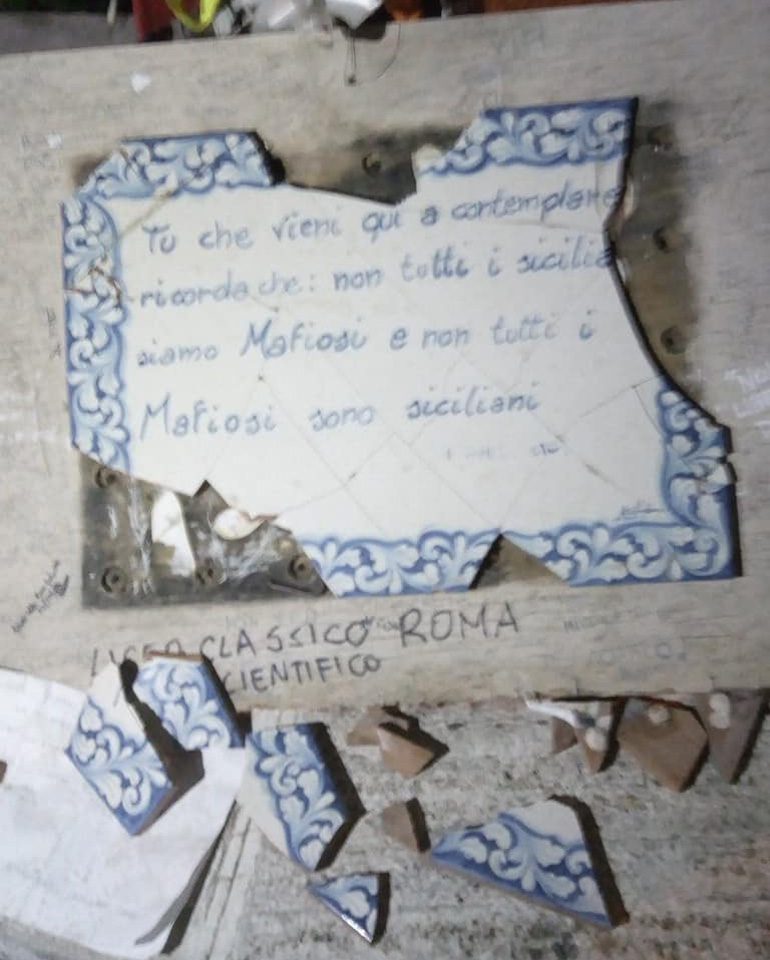 Tu che vieni qui a contemplare
ricorda che: non tutti i sicilia
siamo Mafiosi e non tutti i
Mafiosi sono siciliani
LICEO CLASSICO ROMA
SCIENTIFICO